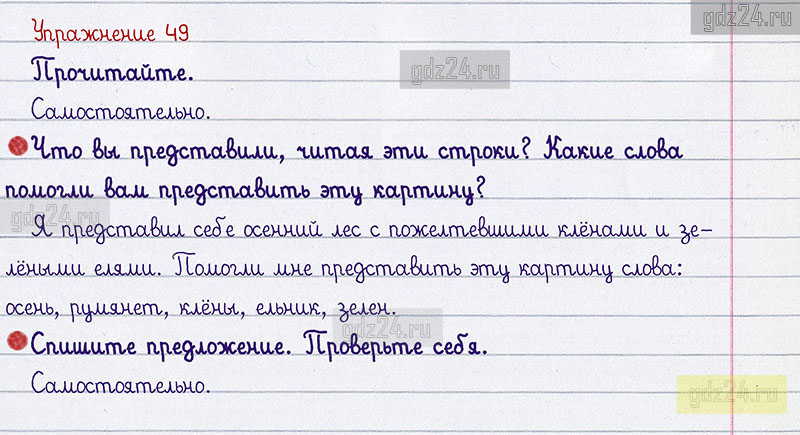 gdz24.ru
Упражнение 49
Прочитайте.
gdz24.ru
Самостоятельно.
Что вы представили, читая эти строки? Какие слова
помогли вам представить эту картину?
gdz24.ru
Я представил себе осенний лес с пожелтевшими клёнами и зе-
лёными елями. Помогли мне представить эту картину слова:
осень, румянет, клёны, ельник, зелен.
gdz24.ru
Спишите предложение. Проверьте себя.
Самостоятельно.
gdz24.ru